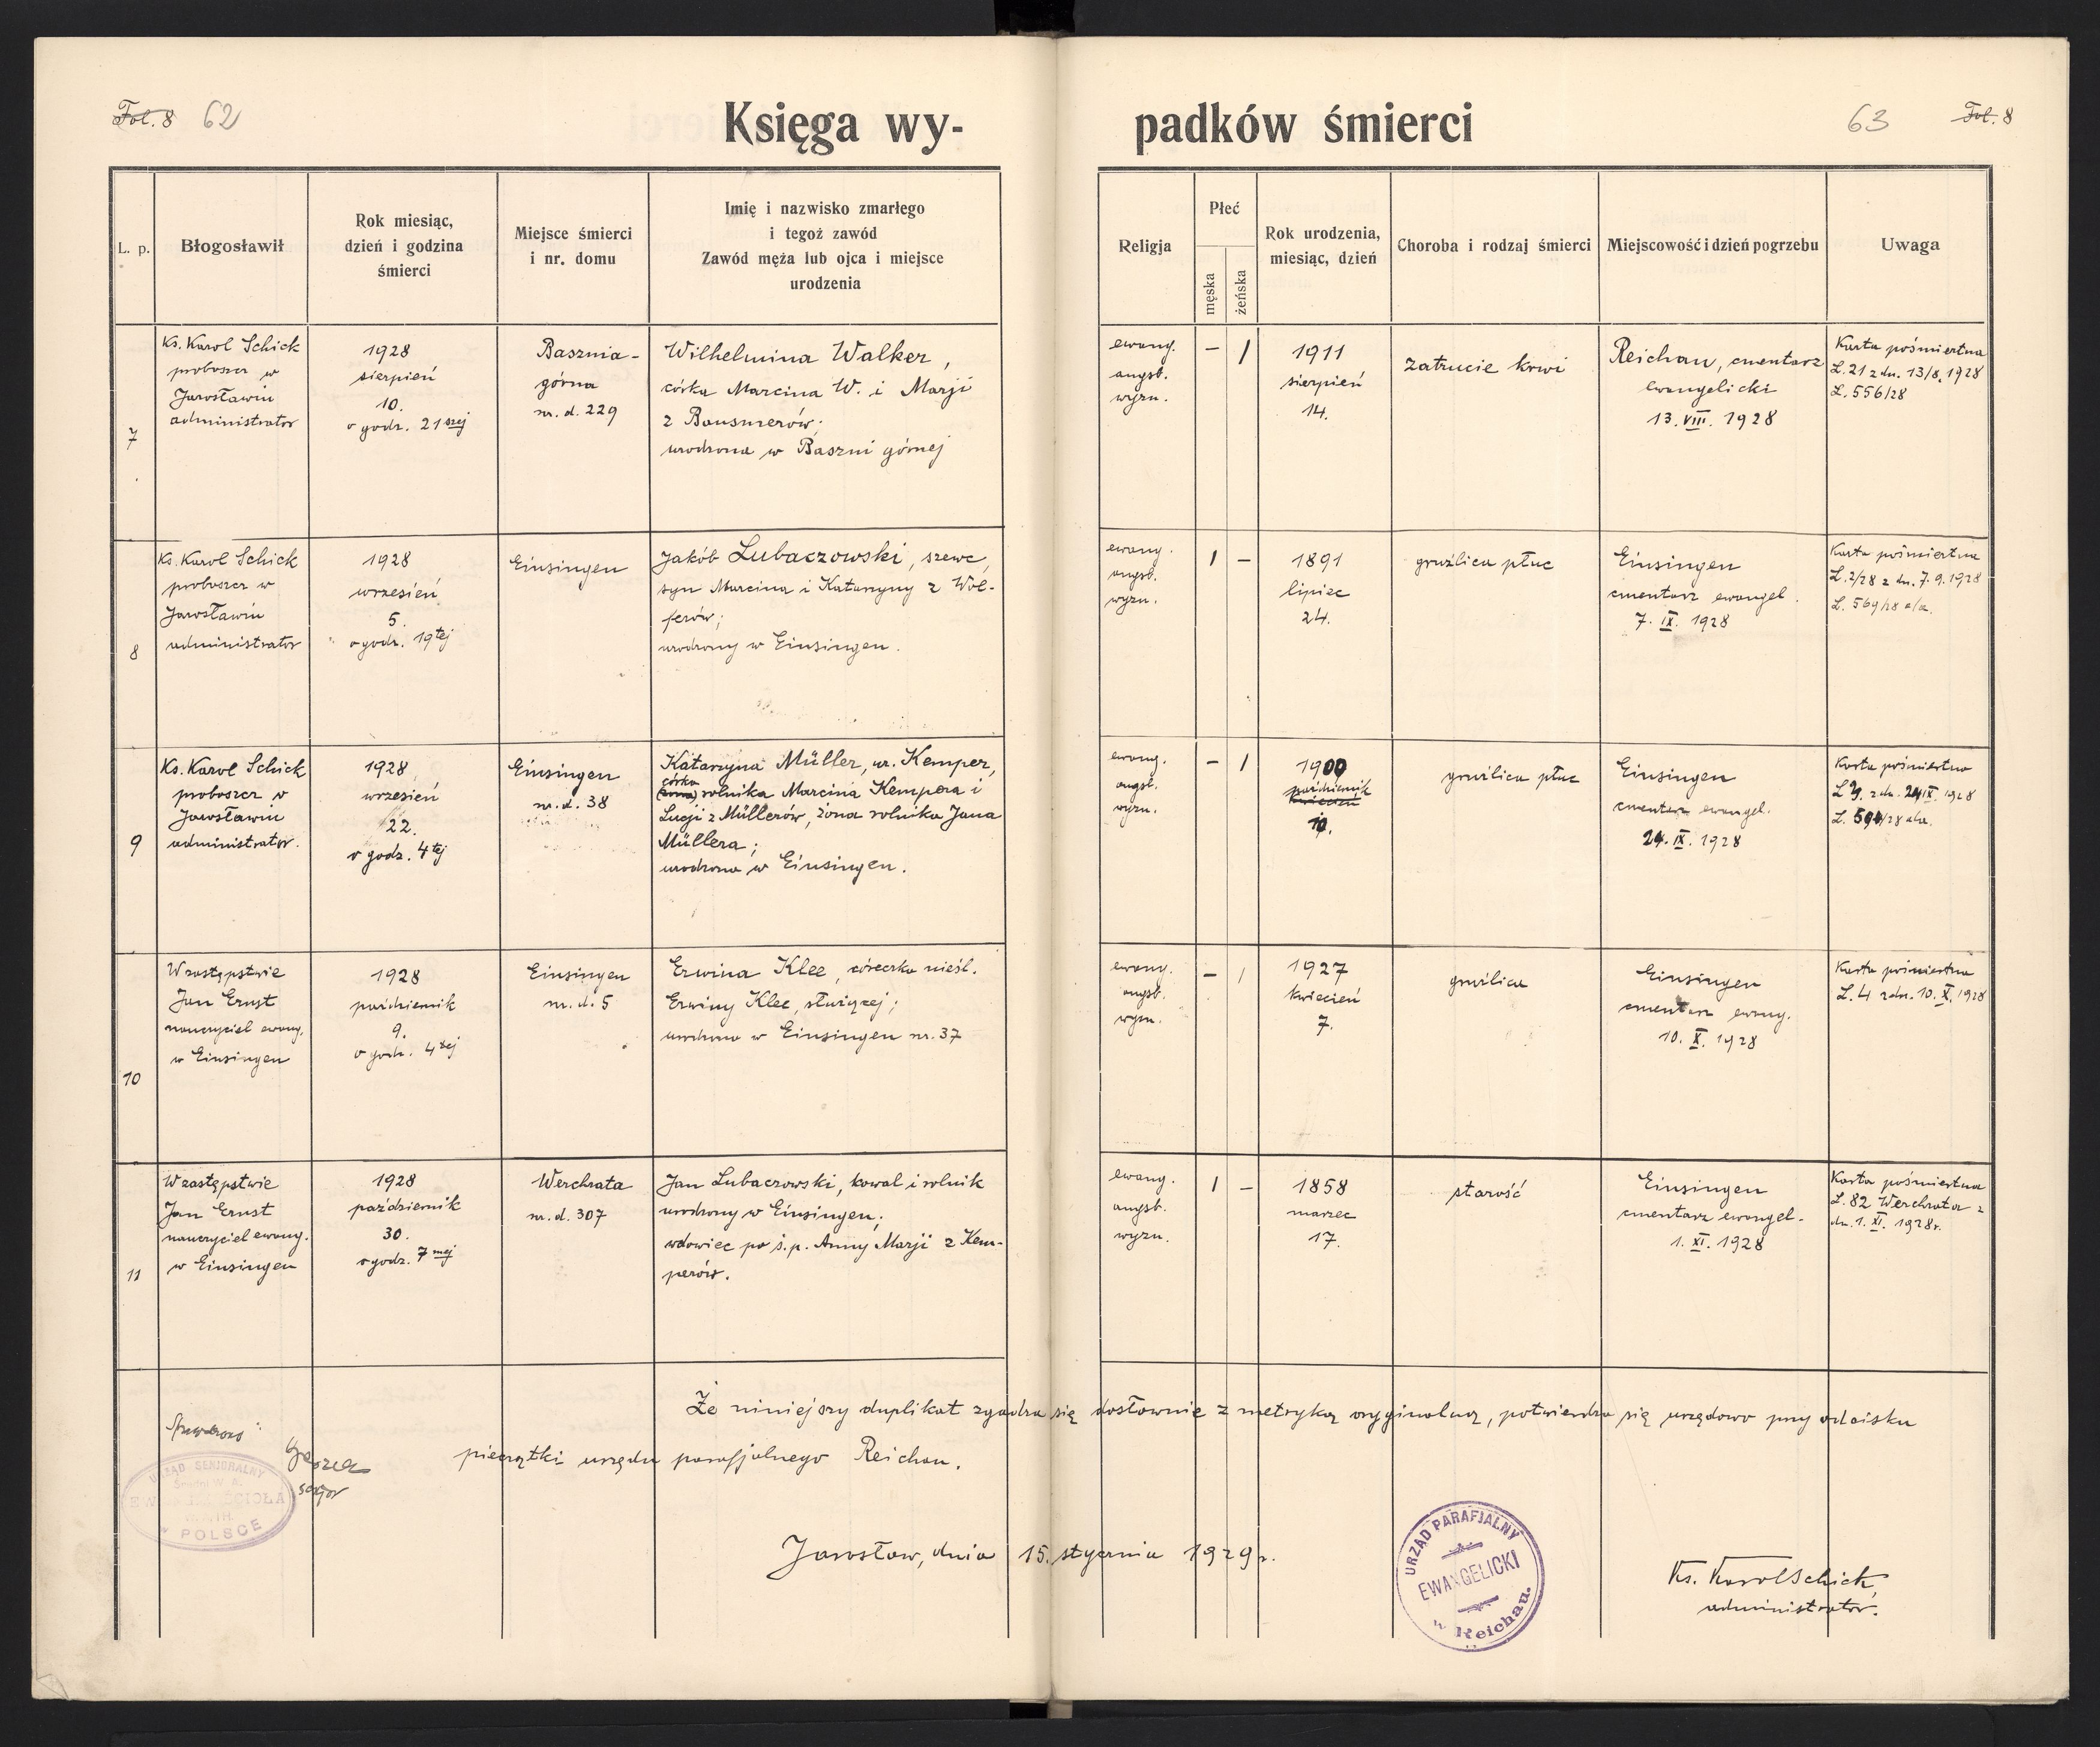 Fol. 8 62
Księga wy-
padków śmierci
63 Fol. 8
L. p.
Błogosławił
Rok miesiąc,
dzień i godzina
śmierci
Miejsce śmierci
i nr. domu
Imię i nazwisko zmarłego
i tegoż zawód
Zawód męża lub ojca i miejsce
urodzenia
Religja
Płeć
męska
żeńska
Rok urodzenia,
miesiąc, dzień
Choroba i rodzaj śmierci
Miejscowość i dzień pogrzebu
Uwaga
7
Ks. Karol Schick
proboszcz w
Jarosławiu
administrator
1928
sierpień
10.
o godz. 21szej
Basznia-
górna
nr. d. 229
Wilhelmina Walker,
córka Marcina W. i Marji
z Bausmerów;
urodzona w Baszni górnej
ewang.
augsb.
wyzn.
– 1
1911
sierpień
14.
zatrucie krwi
Reichau, cmentarz
ewangelicki
13. VIII. 1928
Karta pośmiertna
L. 21 z dn. 13/8. 1928
L. 556/28
8
Ks. Karol Schick
proboszcz w
Jarosławiu
administrator
1928
wrzesień
5.
o godz. 19tej
Einsingen
Jakób Lubaczowski, szewc,
syn Marcina i Katarzyny z Wol-
ferów;
urodzony w Einsingen.
ewang.
augsb.
wyzn.
1 –
1891
lipiec
24.
gruźlica płuc
Einsingen
cmentarz ewangel.
7. IX. 1928
Karta pośmiertna
L. 2/28 z dn. 7. 9. 1928
L. 569/28 a/a.
9
Ks. Karol Schick
proboszcz w
Jarosławiu
administrator.
1928
wrzesień
22.
o godz. 4tej
Einsingen
nr. d. 38
Katarzyna Müller, ur. Kemper,
córka
(żona) rolnika Marcina Kempera i
Lucji z Müllerów, żona rolnika Jana
Müllera;
urodzona w Einsingen.
ewang.
augsb.
wyzn.
– 1
1900
październik
kwiecień
10.
gruźlica płuc
Einsingen
cmentarz ewangel.
24. IX. 1928
Karta pośmiertna
L. z dn. 24 IX. 1928
L. /28 a/a.
10
W zastępstwie
Jan Ernst
nauczyciel ewang.
w Einsingen
1928
październik
9.
o godz. 4tej
Einsingen
nr. d. 5
Erwina Klee, córeczka nieśl.
Erwiny Klee, służącej;
urodzona w Einsingen nr. 37
ewang.
augsb.
wyzn.
– 1
1927
kwiecień
7.
gruźlica
Einsingen
cmentarz ewang.
10. X. 1928
Karta pośmiertna
L. 4 z dn. 10. X. 1928
11
W zastępstwie
Jan Ernst
nauczyciel ewang.
w Einsingen
1928
październik
30.
o godz. 7mej
Werchrata
nr. d. 307
Jan Lubaczowski, kowal i rolnik
urodzony w Einsingen;
wdowiec po ś. p. Anny Marji z Kem-
perów.
ewang.
augsb.
wyzn.
1 –
1858
marzec
17.
starość
Einsingen
cmentarz ewangel.
1. XI. 1928
Karta pośmiertna
L. 82 Werchrata z
dn. 1. XI. 1928r.
Że niniejszy duplikat zgadza się dosłownie z metryką oryginalną, potwierdza się urzędowo przy odcisku
pieczątki urzędu parafjalnego Reichau.
senjor
URZĄD SENJORALNY
POLSCE
Jarosław, dnia 15. stycznia 1929r.
URZĄD PARAFJALNY
EWANGELICKI
w Reichau.
Ks. Karol Schick,
administrator.